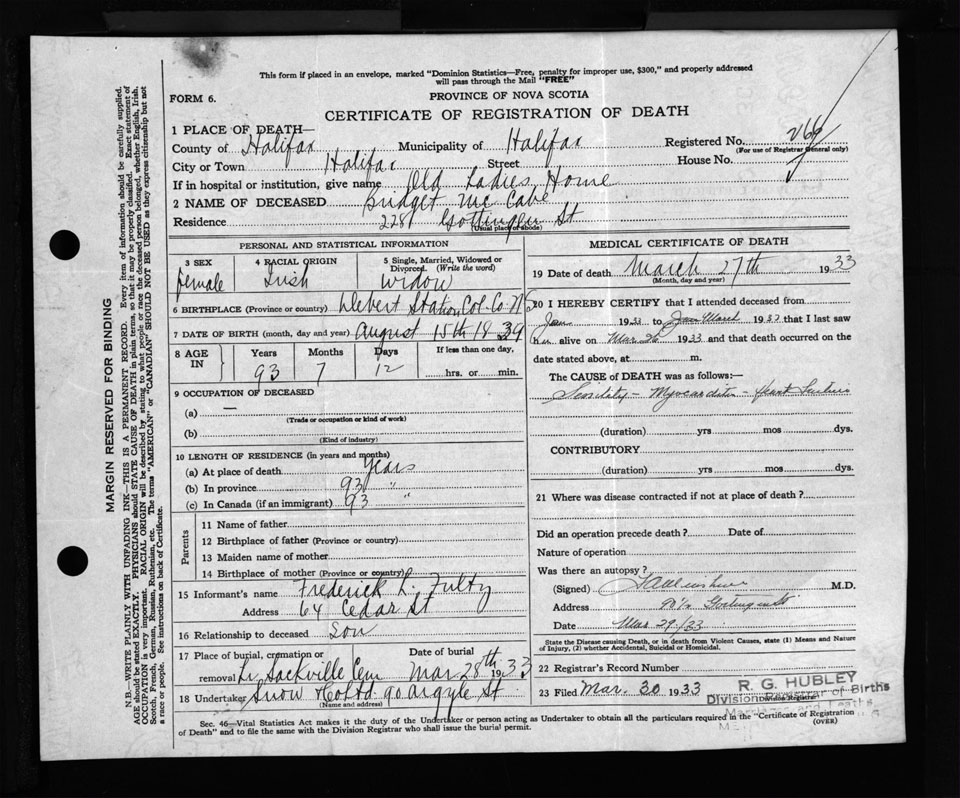 This form if placed in an envelope, marked "Dominion Statistics—Free, penalty for improper use, $300," and properly addressed
will pass through the Mail "FREE"
FORM 6.
PROVINCE OF NOVA SCOTIA
CERTIFICATE OF REGISTRATION OF DEATH
1 PLACE OF DEATH—
County of Halifax Municipality of Halifax Registered No. 266
(For use of Registrar General only)
City or Town Halifax Street House No.
If in hospital or institution, give name Old Ladies Home
2 NAME OF DECEASED Bridget McCabe
Residence 228 Gottingen St
(Usual place of abode)
PERSONAL AND STATISTICAL INFORMATION
3 SEX 4 RACIAL ORIGIN 5 Single, Married, Widowed or
Divorced. (Write the word)
female Irish Widow
6 BIRTHPLACE (Province or country) Debert Station Col. Co. N S
7 DATE OF BIRTH (month, day and year) August 15th 1839
8 AGE IN Years Months Days If less than one day,
93 7 12 hrs. or min.
9 OCCUPATION OF DECEASED
(a) —
(Trade or occupation or kind of work)
(b)
(Kind of industry)
10 LENGTH OF RESIDENCE (in years and months)
(a) At place of death years
(b) In province 93 "
(c) In Canada (if an immigrant) 93 "
Parents
11 Name of father
12 Birthplace of father (Province or country)
13 Maiden name of mother
14 Birthplace of mother (Province or country)
15 Informant's name Frederick L. Fultz
Address 64 Cedar St
16 Relationship to deceased Son
17 Place of burial, cremation or Date of burial
removal L. Sackville Cem Mar. 28th 1933
18 Undertaker Snow & Co Ltd 90 Argyle St
(Name and address)
MEDICAL CERTIFICATE OF DEATH
19 Date of death March 27th 1933
(Month, day and year)
20 I HEREBY CERTIFY that I attended deceased from
Jan 1933 to March 1933 that I last saw
her alive on Mar 26 1933 and that death occurred on the
date stated above, at m.
The CAUSE of DEATH was as follows:—
Senility - Myocarditis - Heart Failure
(duration) yrs mos dys.
CONTRIBUTORY
(duration) yrs mos dys.
21 Where was disease contracted if not at place of death?
Did an operation precede death? Date of
Nature of operation
Was there an autopsy?
(Signed) M.D.
Address
Date Mar 29/33
State the Disease causing Death, or in death from Violent Causes, state (1) Means and Nature
of Injury, (2) whether Accidental, Suicidal or Homicidal.
22 Registrar's Record Number
23 Filed Mar. 30 1933
(Division Registrar)
R. G. HUBLEY
Division Registrar of Births
Marriages and Deaths
Sec. 46—Vital Statistics Act makes it the duty of the Undertaker or person acting as Undertaker to obtain all the particulars required in the "Certificate of Registration
of Death" and to file the same with the Division Registrar who shall issue the burial permit.
(OVER)
MARGIN RESERVED FOR BINDING
N.B.—WRITE PLAINLY WITH UNFADING INK—THIS IS A PERMANENT RECORD. Every item of information should be carefully supplied.
AGE should be stated EXACTLY. PHYSICIANS should STATE CAUSE OF DEATH in plain terms, so that it may be properly classified. Exact statement of
OCCUPATION is very important. RACIAL ORIGIN will be described by stating to what people or race the deceased person belonged, whether English, Irish,
Scotch, French, German, Russian, Ruthenian, etc. The terms "AMERICAN" or "CANADIAN" SHOULD NOT BE USED as they express citizenship but not
a race or people. See instructions on back of Certificate.